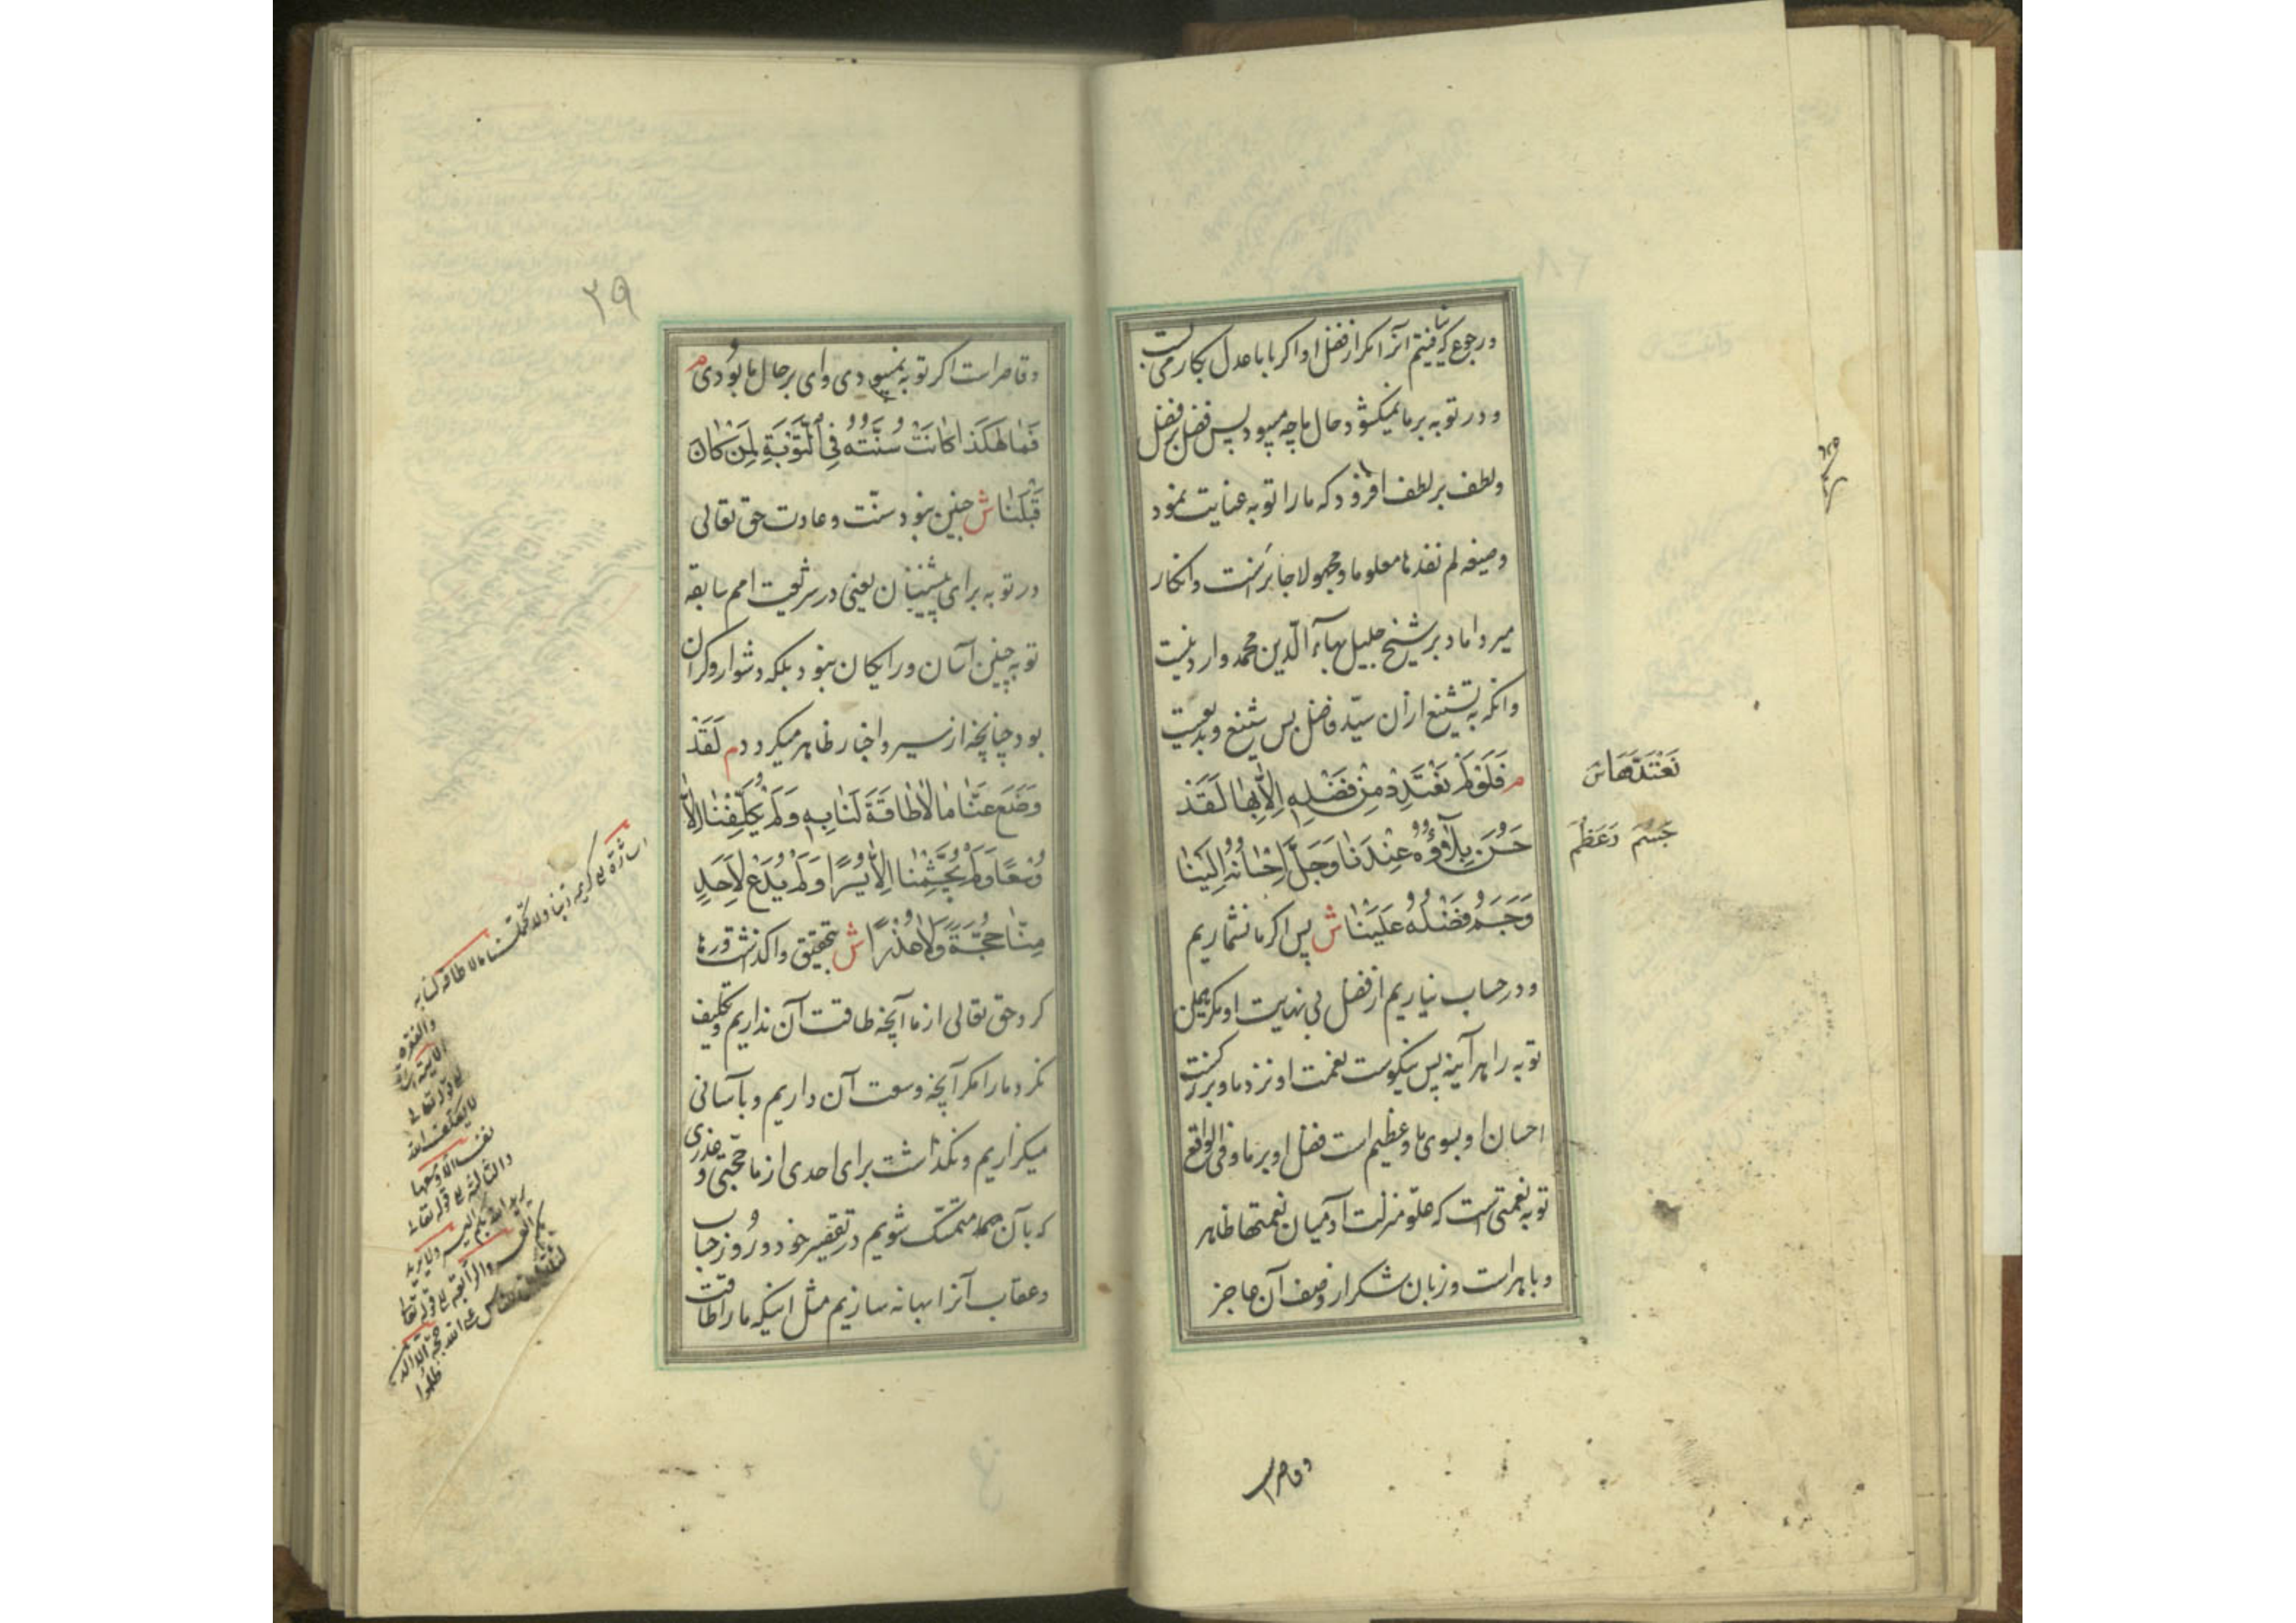 ورجوع که نیافتیم آنرا مگر از فضل او اگر با ما عدل بکار می بست
و در توبه بر ما نمیکشود حال ما چه میبود پس فضل بر فضل
ولطف بر لطف افزود که ما را توبه عنایت نمود
وصیغه لم نفدها معلوما ومجهولا جایز است وانکار
میر داماد بر شیخ جلیل بهآء الدین محمد وارد نیست
وانکه به تشنیع از ان سید فاضل بس شنیع وبدعیت
م فَلَوْ لَمْ نَعْتَدِدْ مِنْ فَضْلِهِ اِلاّٰ بِهٰا لَقَدْ
حَسُنَ بَلآؤُهُ عِنْدَنٰا وَجَلَّ اِحْسٰانُهُ اِلَیْنٰا
وَجَسُمَ فَضْلُهُ عَلَیْنٰا ش پس اکر ما نشماریم
ودر حساب نیاریم از فضل بی نهایت او مکر همین
توبه را هر آینه پس نیکوست نعمت او نزد ما وبزرکست
احسان او بسوی ما وعظیم است فضل او بر ما وفی الواقع
توبه نعمتی است که علو منزلت آن در میان نعمتها ظاهر
وباهر است وزبان شکر از وصف آن عاجز
نَعْتَدَّهَا ش
جَسَمَ وَعَظُمَ
وقاصر است
٣٩
وقاصر است اکر توبه نمیبودی وای بر حال ما بودی م
فَمٰا هٰکَذٰا کٰانَتْ سُنَّتُهُ فِی اَلتَّوْبَةِ لِمَنْ کٰانَ
قَبْلَنٰا ش چنین نبود سنّت وعادت حق تعالی
در توبه برای پیشینیان یعنی در شریعت امم سابقه
توبه چنین آسان ورایکان نبود بلکه دشوار وکران
بود چنانچه از سیر واخبار ظاهر میکردد م لَقَدْ
وَضَعَ عَنّٰا مٰا لاٰ طٰاقَةَ لَنٰا بِهِ وَلَمْ یُکَلِّفْنٰا اِلاّٰ
وُسْعًا وَلَمْ یُجَشِّمْنٰا اِلاّٰ یُسْرًا وَلَمْ یَدَعْ لِاَحَدٍ
مِنّٰا حُجَّةً وَلاٰ عُذْرًا ش بتحقیق واکذاشت ورها
کرد حق تعالی از ما آنچه طاقت آن نداریم وتکلیف
نکرد ما را مکر آنچه وسعت آن داریم وبآسانی
میکزاریم ونکذاشت برای احدی از ما حجّتی وعذری
که بآن متمسک شویم در تقصیر خود در روز حساب
وعقاب آنرا بهانه سازیم مثل اینکه ما را طاقت
اشارة الی کریمه ربنا ولا تحملنا ما لا طاقة لنا به
لا یکلف الله
نفسا الا وسعها
والثالثة الی قوله تعالی
یرید الله بکم الیسر ولا یرید
بکم العسر والرابعة الی قوله تعالی